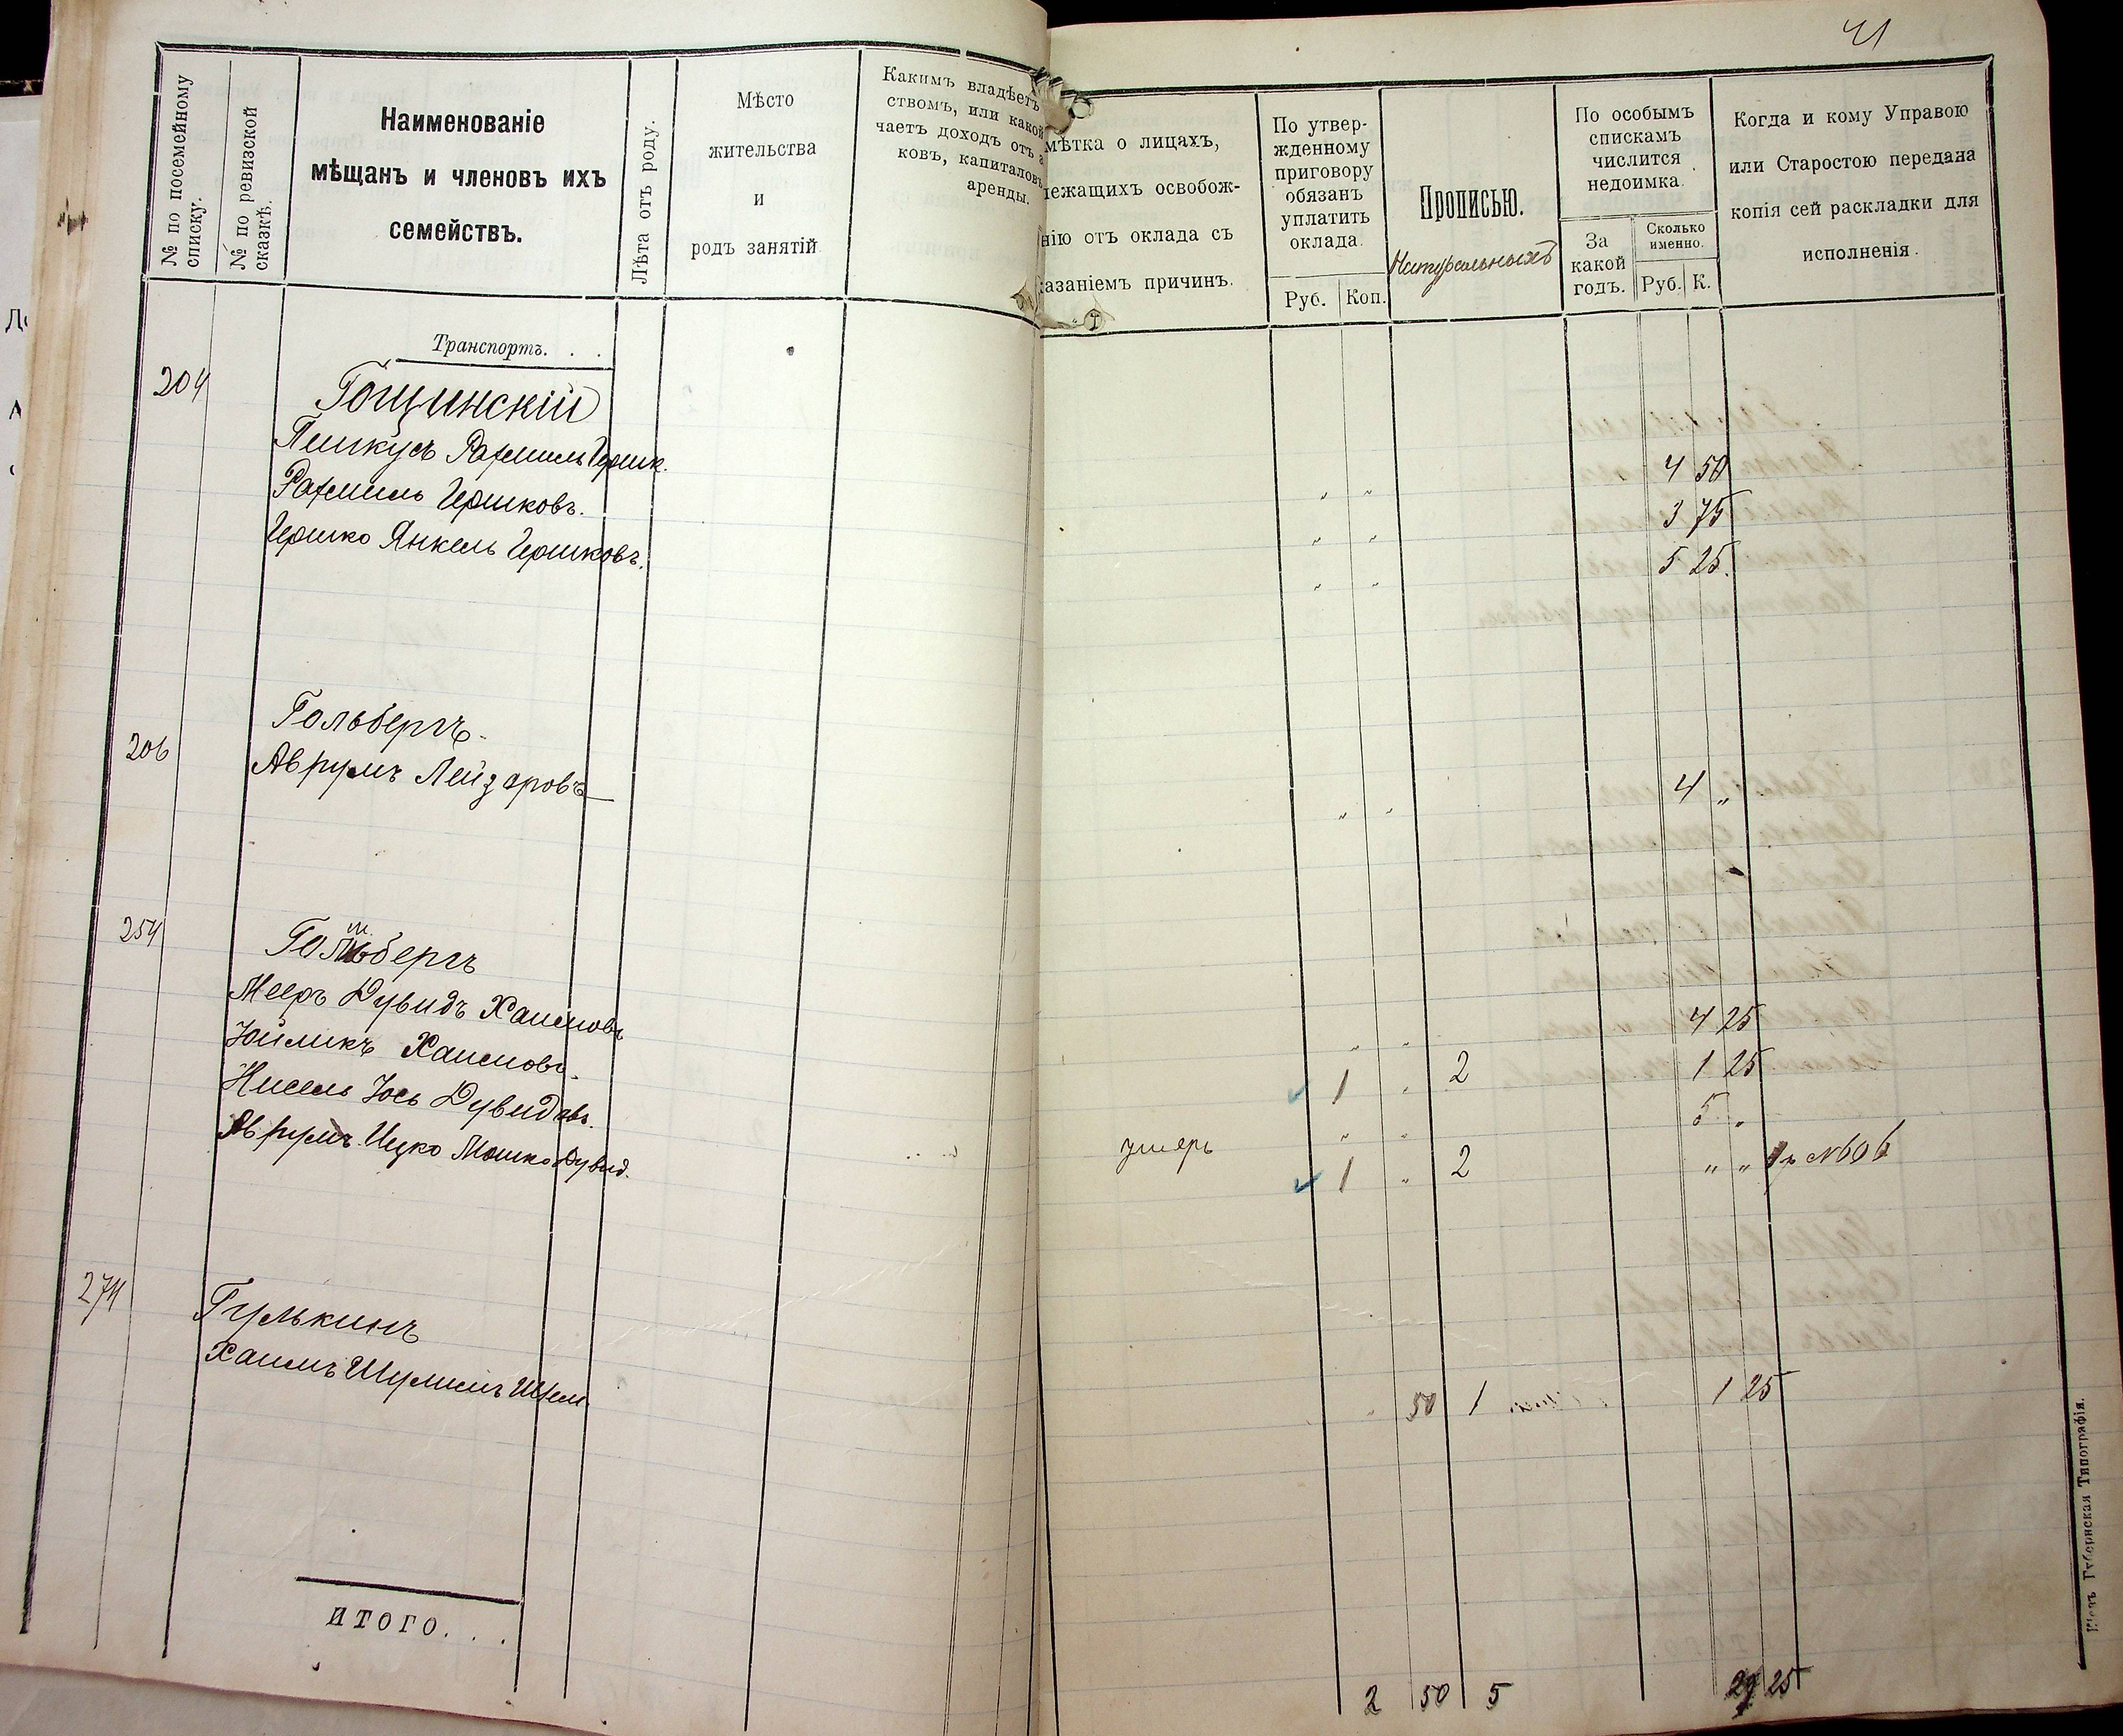 41
№ по посемейному списку.
№ по ревизской сказкѣ.
Наименованіе
мѣщанъ и членовъ ихъ
семействъ.
Лѣта отъ роду.
Мѣсто
жительства
и
родъ занятій.
Какимъ владѣетъ
ствомъ, или какой
чаетъ доходъ отъ а
ковъ, капиталовъ
аренды.
мѣтка о лицахъ,
лежащихъ освобож-
нію отъ оклада съ
казаніемъ причинъ.
По утвер-
жденному
приговору
обязанъ
уплатить
оклада.
Руб. Коп.
Прописью.
Натуральныхъ
По особымъ
спискамъ
числится
недоимка.
За
какой
годъ.
Сколько
именно.
Руб. К.
Когда и кому Управою
или Старостою передана
копія сей раскладки для
исполненія.
Транспортъ. . .
204 Гощинскій
Пинкусъ Рахмиль Гершк. „ „ 4 50
Рахмиль Гершковъ. „ „ 3 75
Гершко Янкель Гершковъ. „ „ 5 25.
206 Гольбергъ.
Аврумъ Лейзоровъ „ „ 4 „
254
Мееръ Дувидъ Хаимовъ „ „ 4 25
Хаимовъ. 1 „ 2 1 25
Нисель Іось Дувидовъ. „ „ 5 „
Аврумъ Ицко Мошко Дувид. умеръ 1 „ 2 „ „ № 606
274 Гулькинъ
Хаимъ Шулимъ „ 50 1 1 25
ИТОГО. . . 2 50 5 29 25
Кіевъ Губернская Типографія.